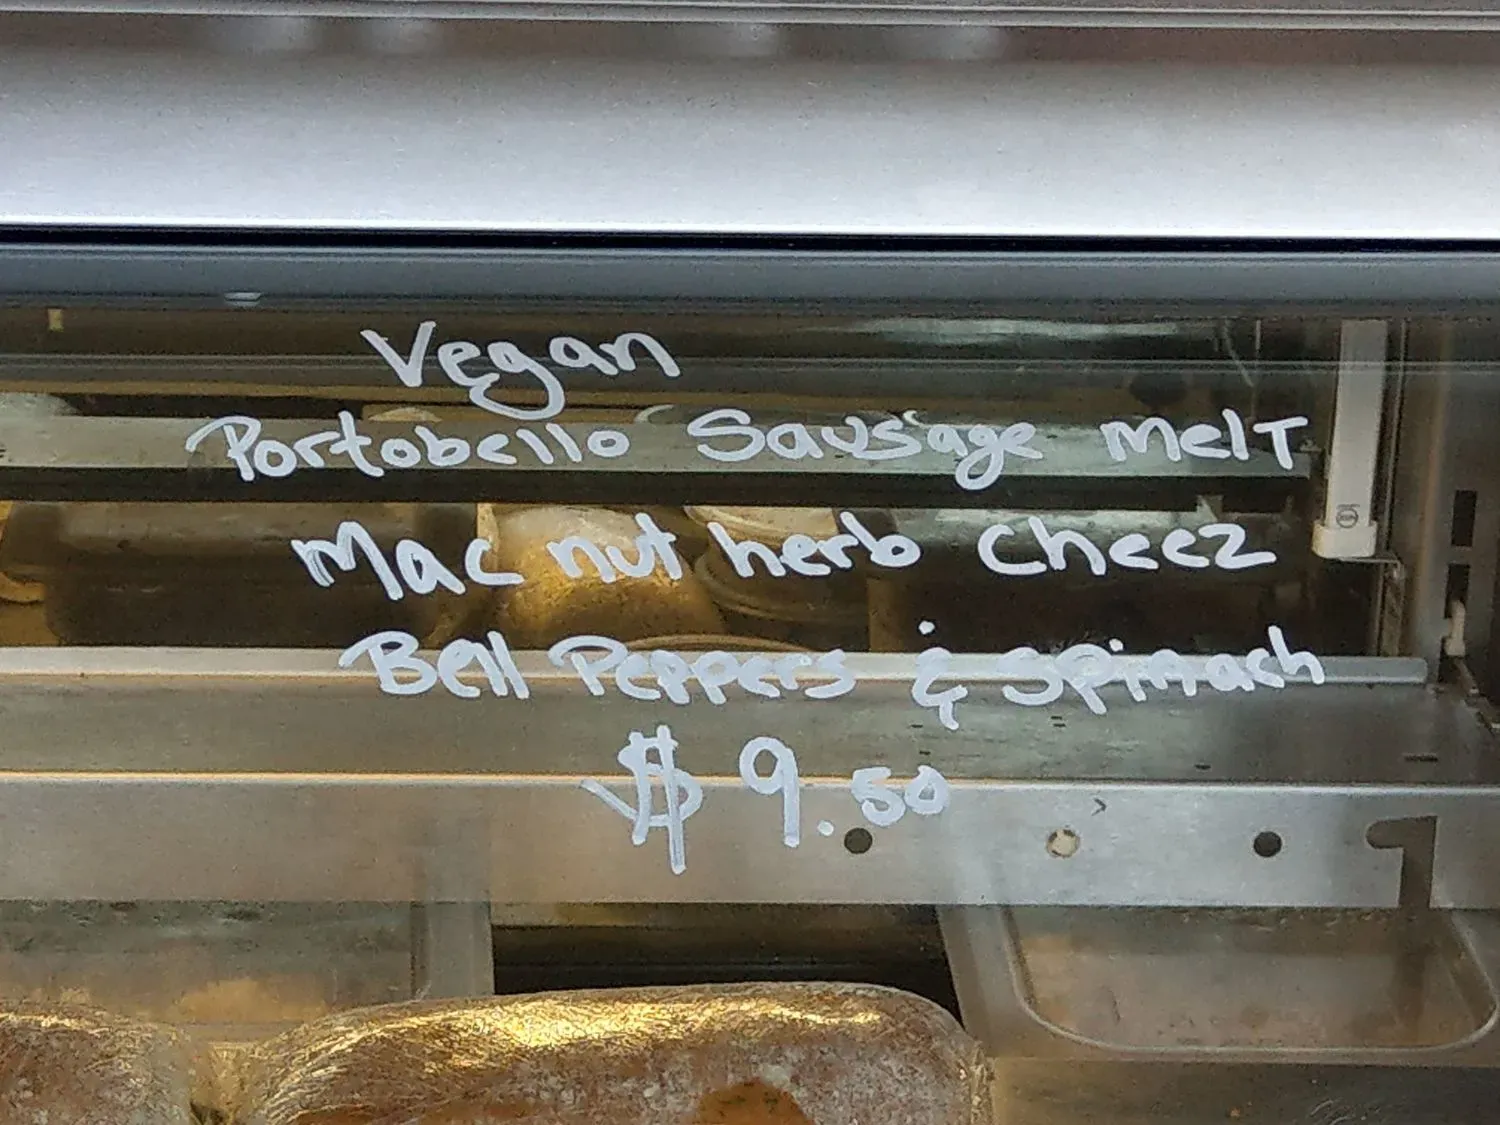 Vegan
Portobello Sausage melT
Mac nut herb Cheez
Bell Peppers & Spinach
$ 9.50